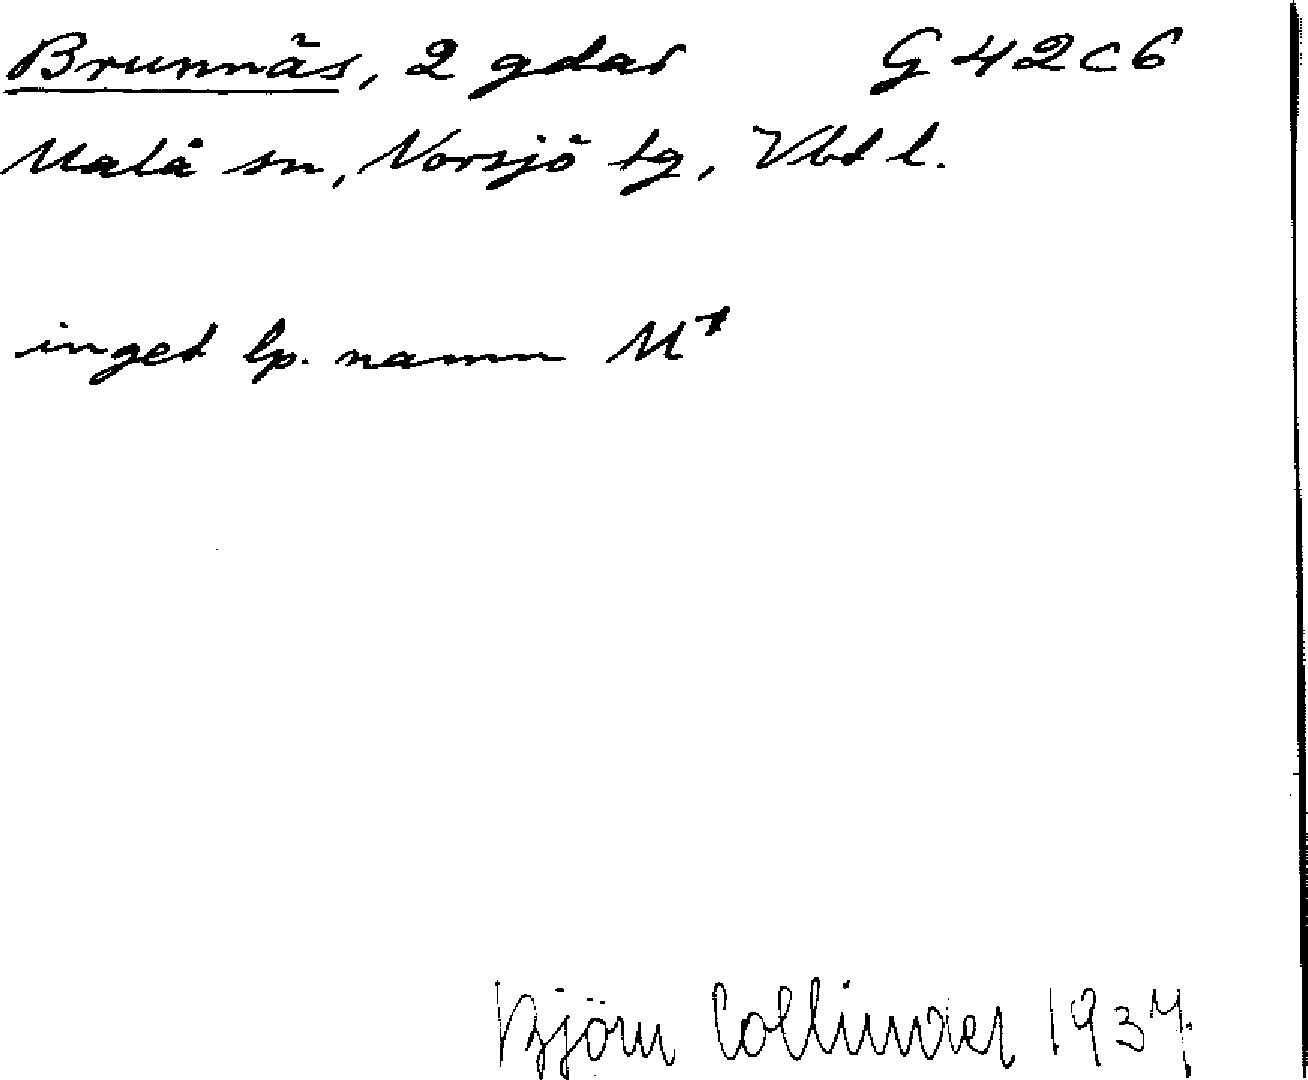 Brunnäs, 2 gdar G 42 c 6
Malå sn, Norsjö tg, Vbt l.
inget lp. namn M⁺
Björn Collinder 1937.